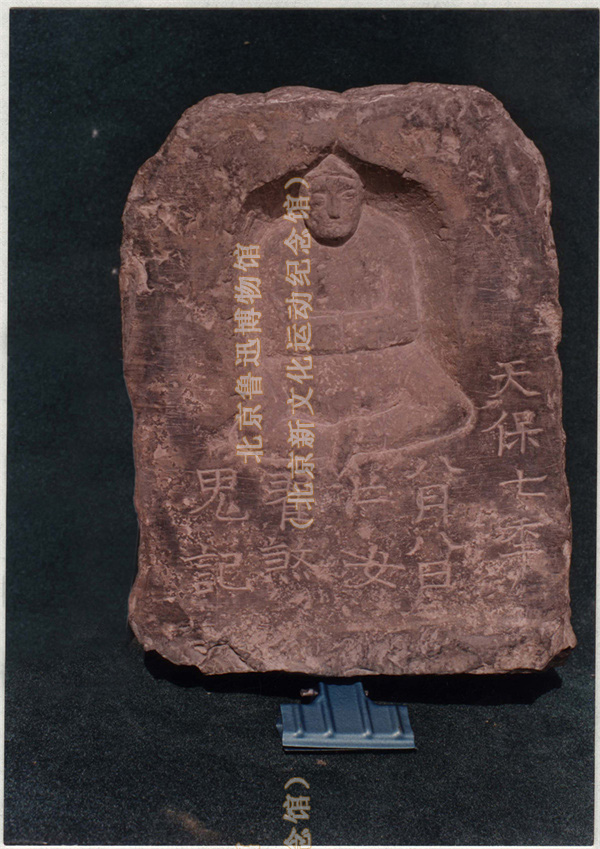 天保七年
八月八日
女
煞
鬼記
北京鲁迅博物馆
（北京新文化运动纪念馆）
念馆）